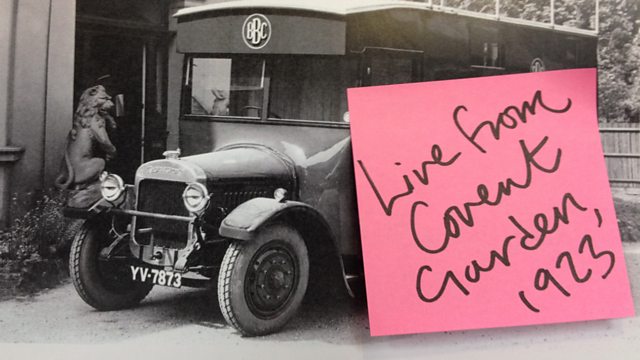 BBC
YV·7873
Live from
Covent
Garden,
1923